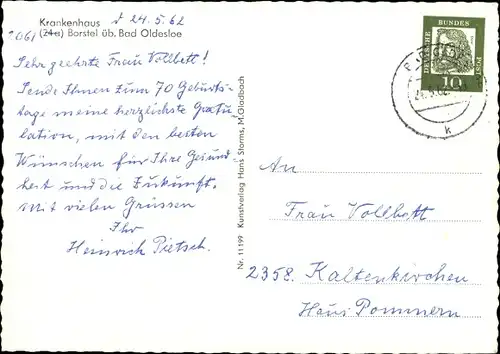 Krankenhaus d 24.5.62
2061 (24a) Borstel üb. Bad Oldesloe
Sehr geehrte Frau Vollbett!
Sende Ihnen zum 70 Geburts-
tage meine herzlichste Gratu-
lation, mit den besten
Wünschen für Ihre Gesund-
heit und die Zukunft.
Mit vielen Grüssen
Ihr
Heinrich Pietsch.
Nr. 11199 Kunstverlag Hans Storms, M.Gladbach
DEUTSCHE BUNDES POST
10
k
An
Frau Vollbett
2358. Kaltenkirchen
Haus Pommern